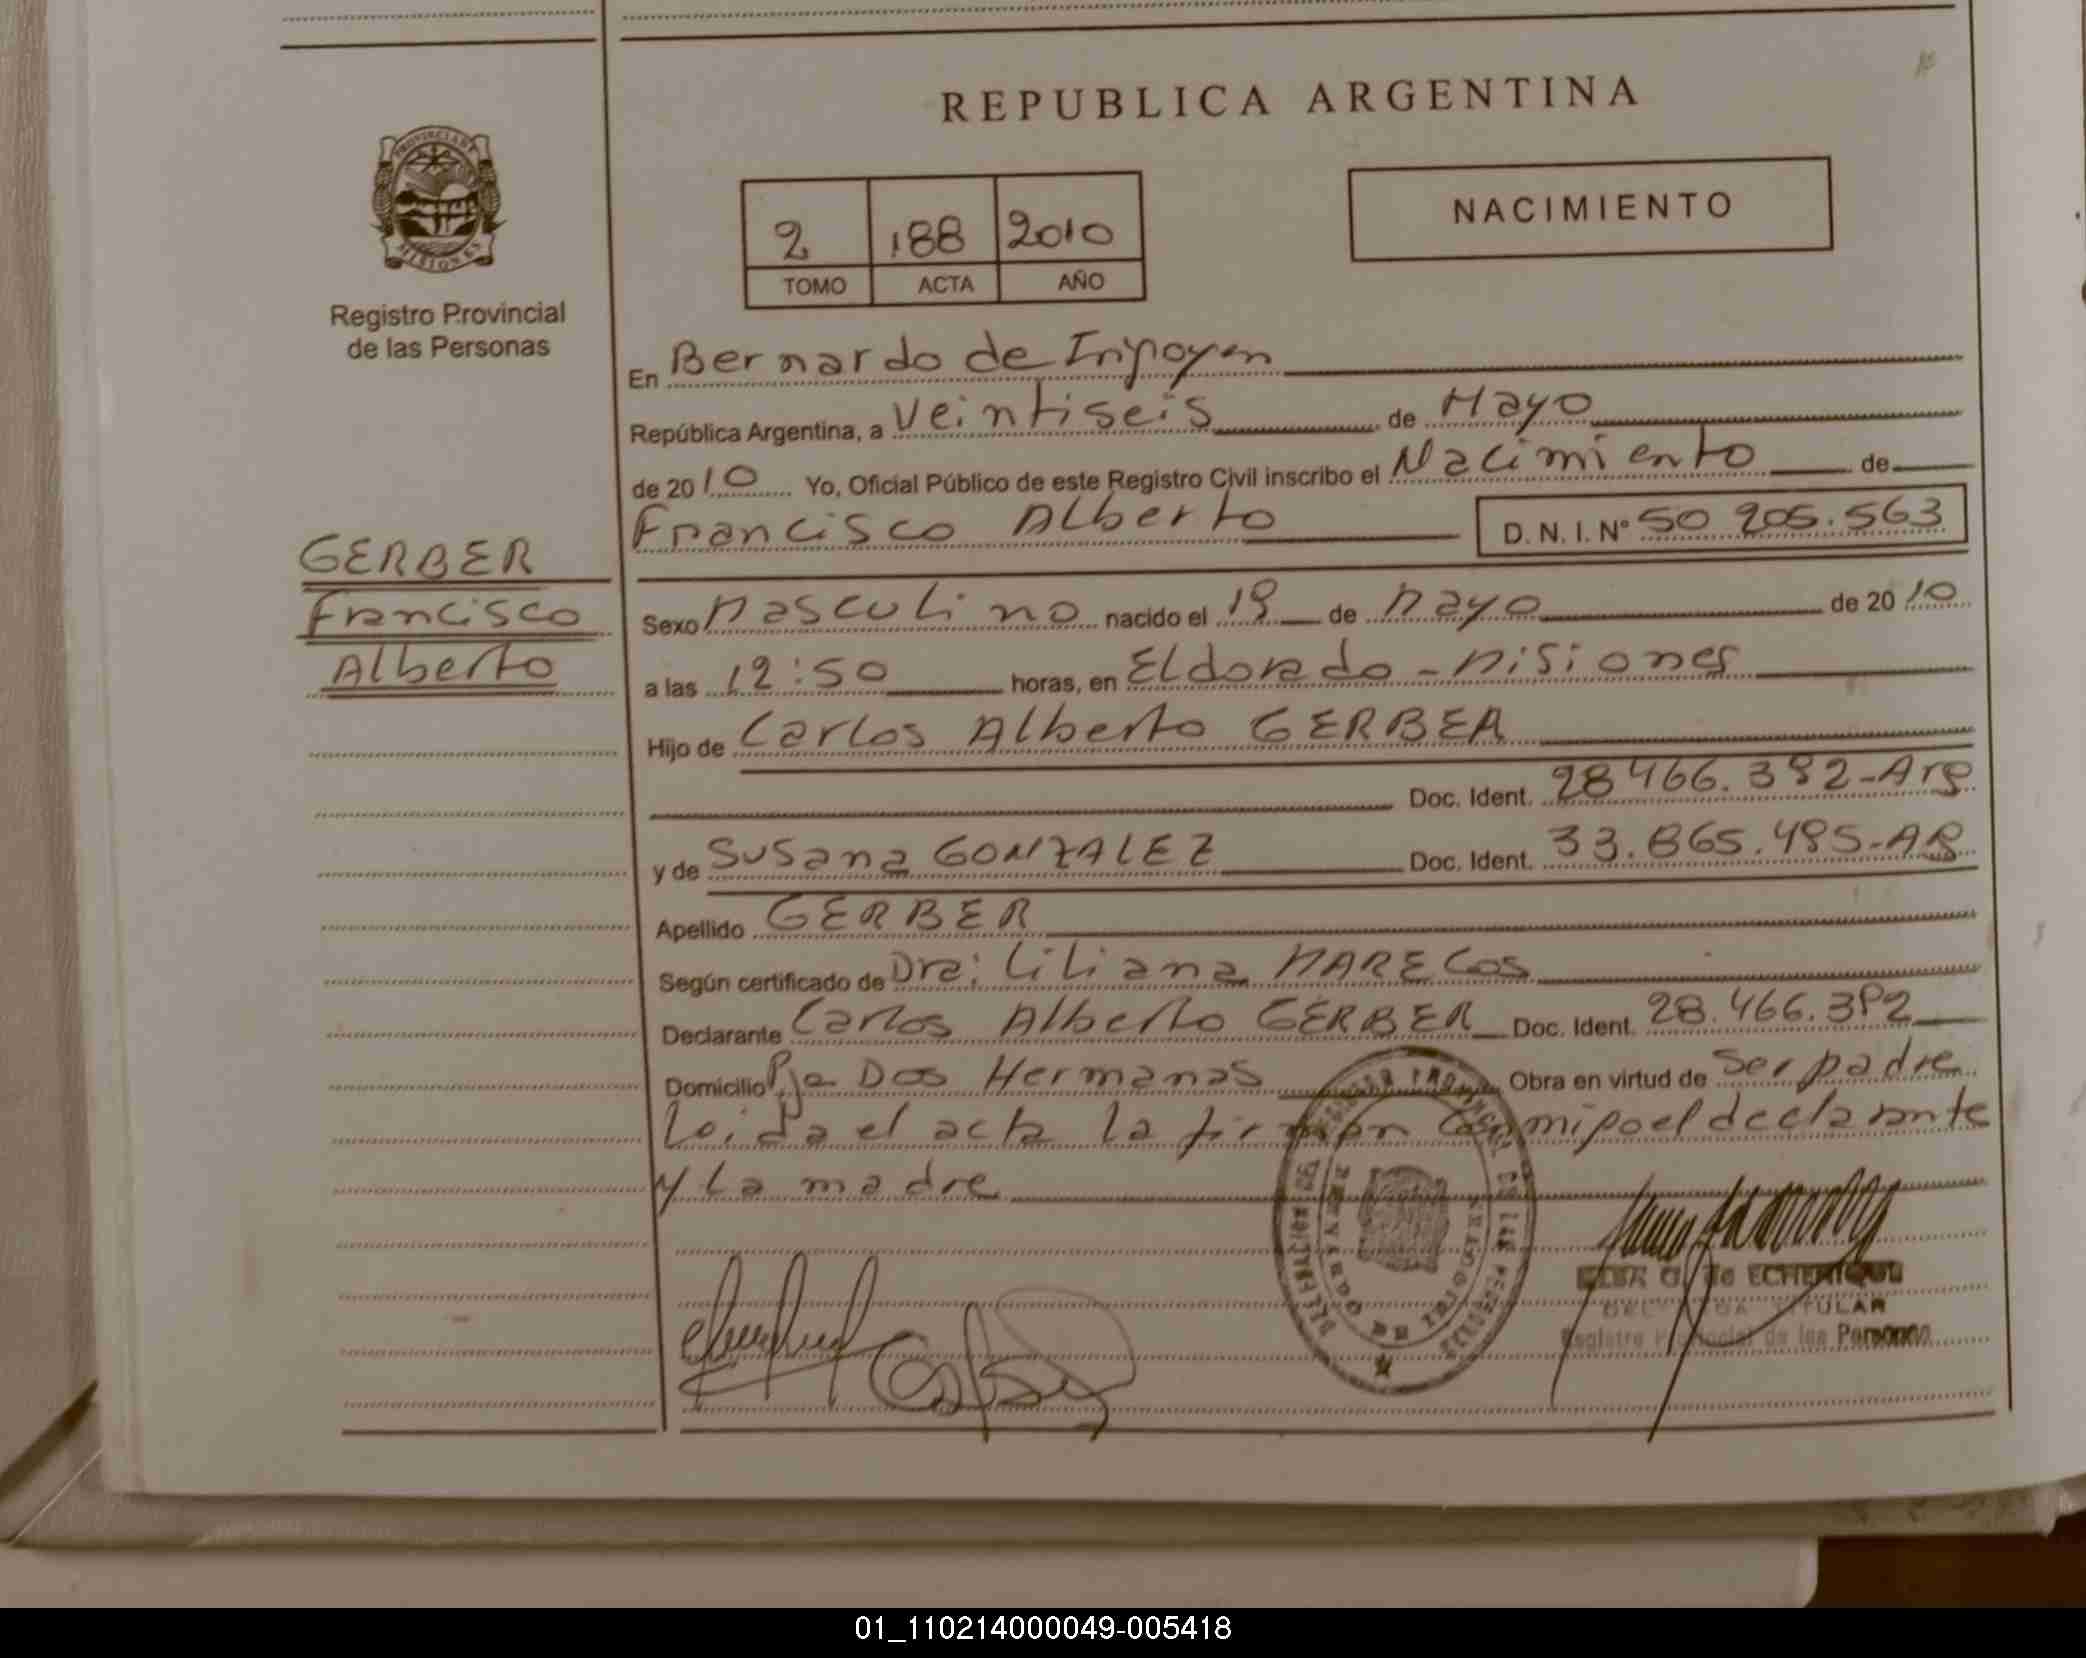 REPUBLICA ARGENTINA
NACIMIENTO
2 188 2010
TOMO ACTA AÑO
PROVINCIA DE MISIONES
Registro Provincial
de las Personas
GERBER
Francisco
Alberto
En Bernardo de Irigoyen
República Argentina, a Veintiseis de Mayo
de 2010 Yo, Oficial Público de este Registro Civil inscribo el Nacimiento de
Francisco Alberto D. N. I. N° 50 205.563
Sexo Masculino nacido el 19 de Mayo de 2010
a las 12:50 horas, en Eldorado - Misiones
Hijo de Carlos Alberto GERBER
Doc. Ident. 28 466.392-Arg
y de Susana GONZALEZ Doc. Ident. 33.865.495-AR
Apellido GERBER
Según certificado de Dra: Liliana MARECOS
Declarante Carlos Alberto GERBER Doc. Ident. 28.466.392
Domicilio Pje Dos Hermanas Obra en virtud de Ser padre
Leida el acta la firman conmigo el declarante
y la madre
de ECHENIQUE
TITULAR
Registro Provincial de las Personas
01_110214000049-005418